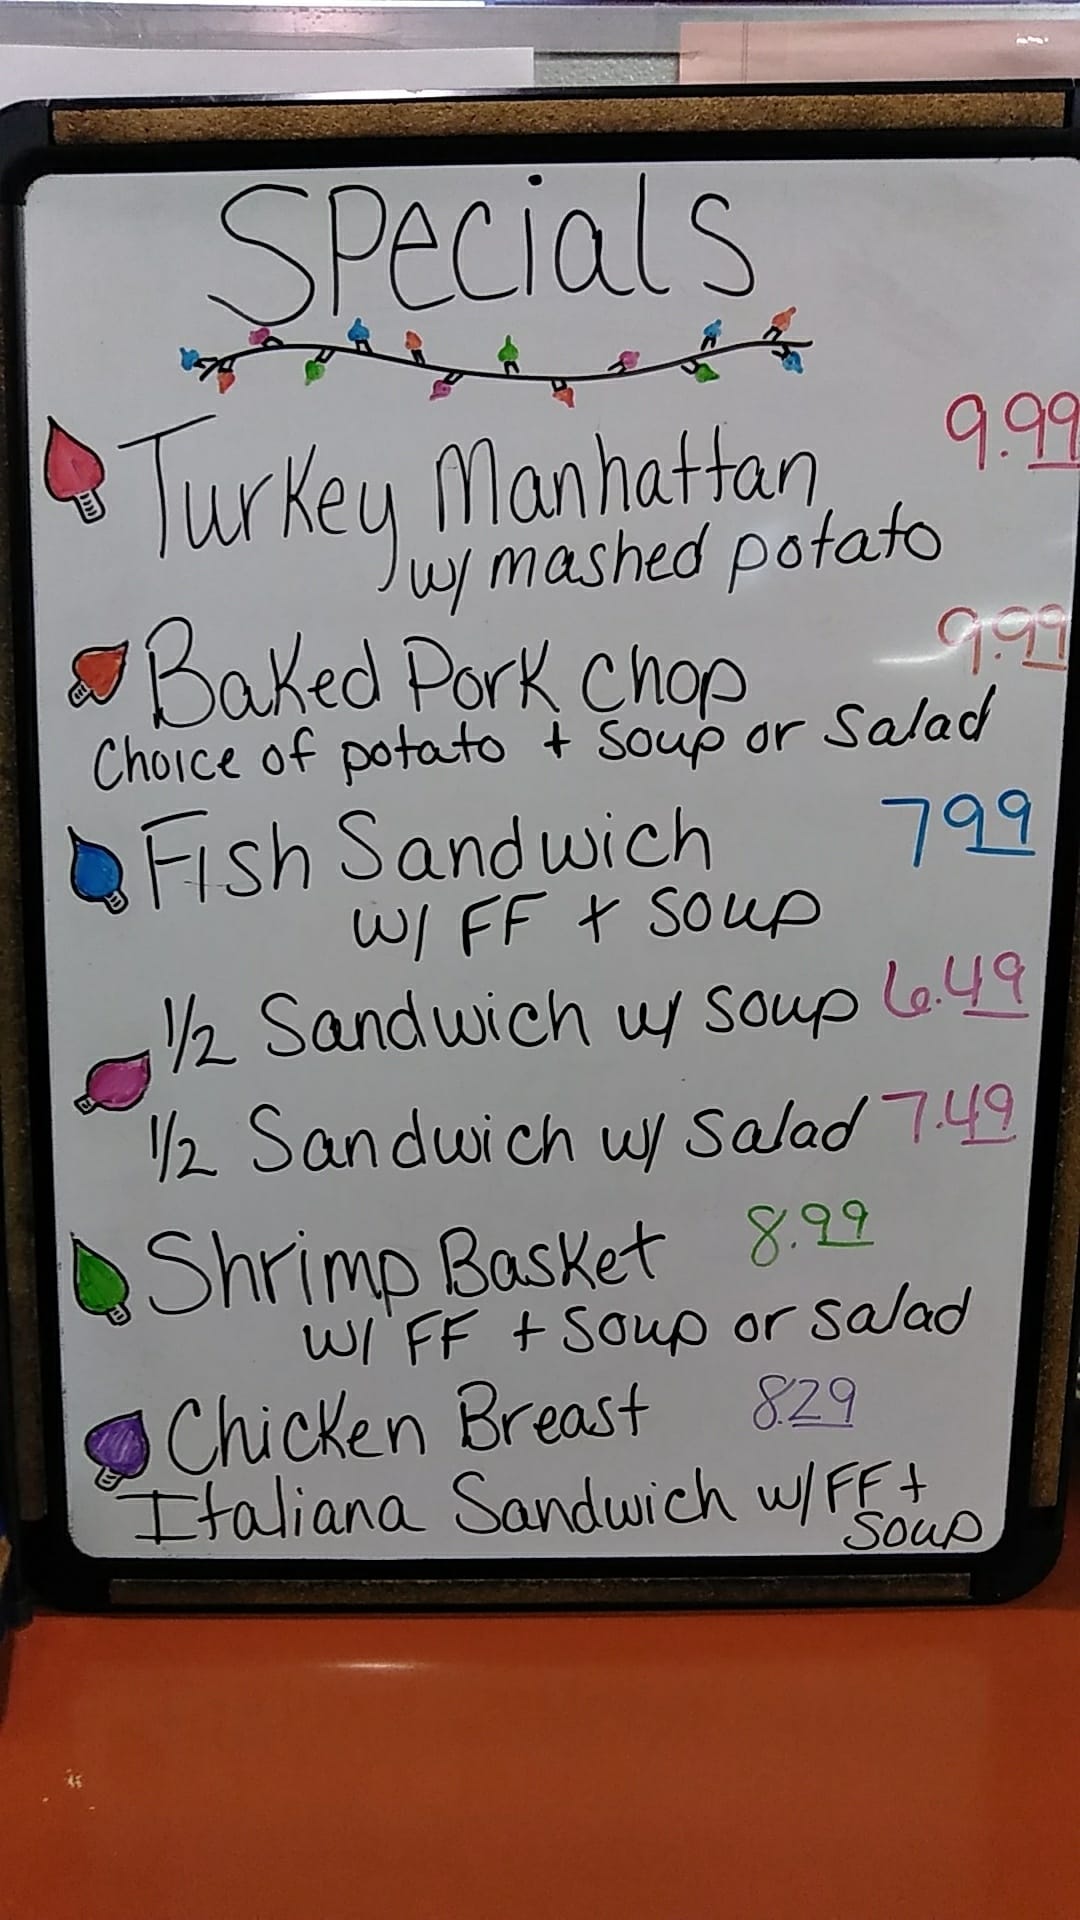 Specials
Turkey Manhattan 9.99
w/ mashed potato
Baked Pork Chop 9.99
Choice of potato + Soup or Salad
Fish Sandwich 799
w/ FF + Soup
1/2 Sandwich w/ Soup 6.49
1/2 Sandwich w/ Salad 7.49
Shrimp Basket 8.99
w/ FF + Soup or Salad
Chicken Breast 8.29
Italiana Sandwich w/ FF +
Soup